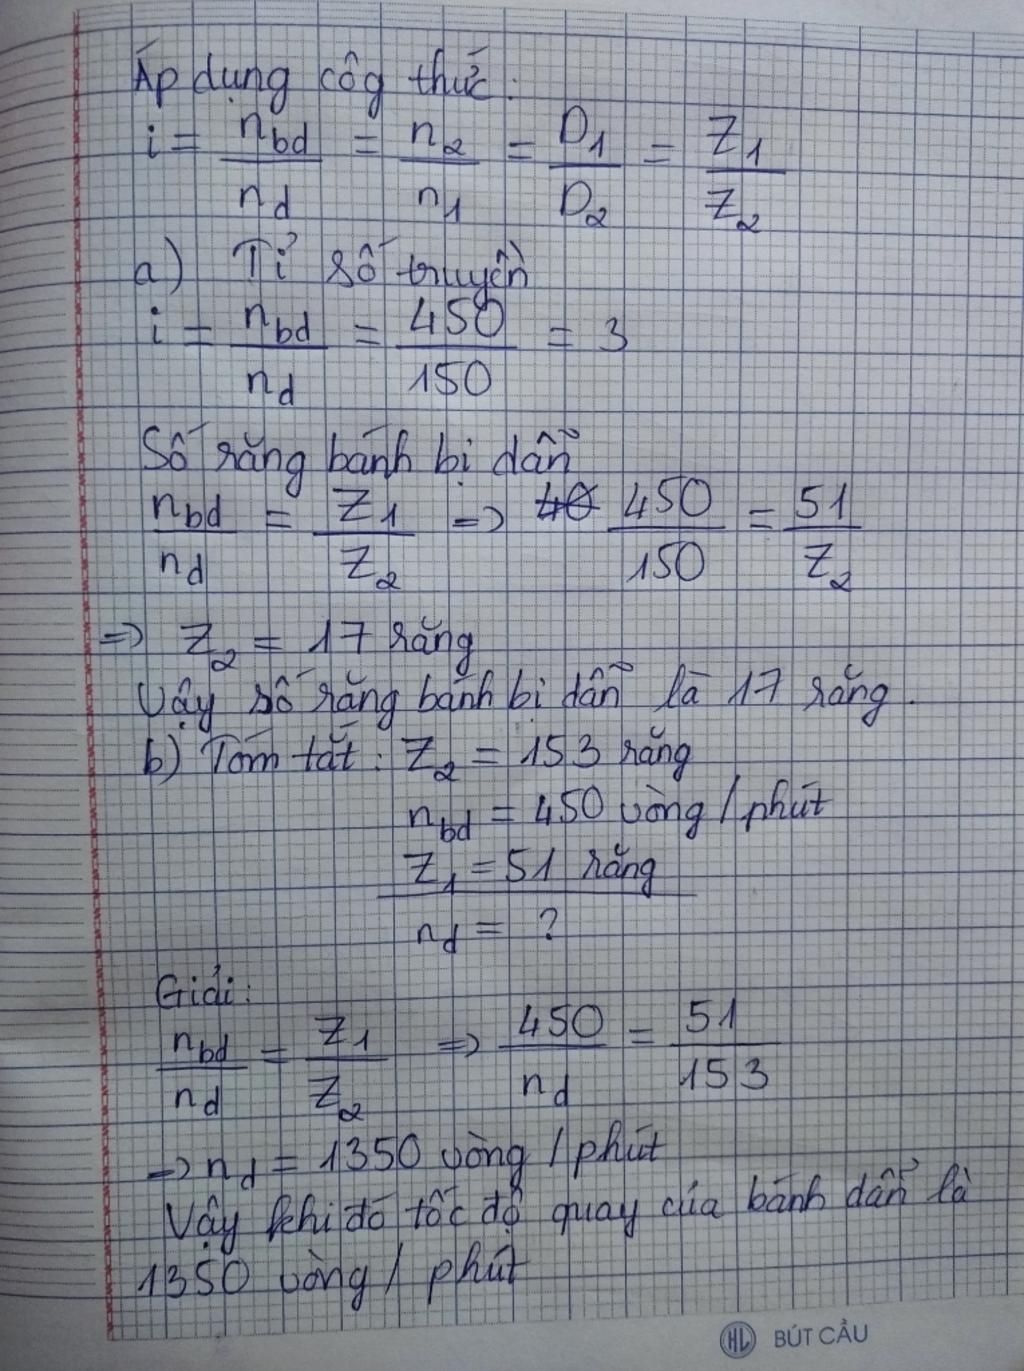 Áp dụng côg thức:
i = n_bd / n_d = n_2 / n_1 = D_1 / D_2 = Z_1 / Z_2
a) Tỉ số truyền
i = n_bd / n_d = 450 / 150 = 3
Số răng bánh bị dẫn
n_bd / n_d = Z_1 / Z_2 => 450 / 150 = 51 / Z_2
=> Z_2 = 17 răng
Vậy số răng bánh bị dẫn là 17 răng.
b) Tóm tắt: Z_2 = 153 răng
n_bd = 450 vòng / phút
Z_1 = 51 răng
n_d = ?
Giải:
n_bd / n_d = Z_1 / Z_2 => 450 / n_d = 51 / 153
=> n_d = 1350 vòng / phút
Vậy khi đó tốc độ quay của bánh dẫn là
1350 vòng / phút
HL BÚT CẦU